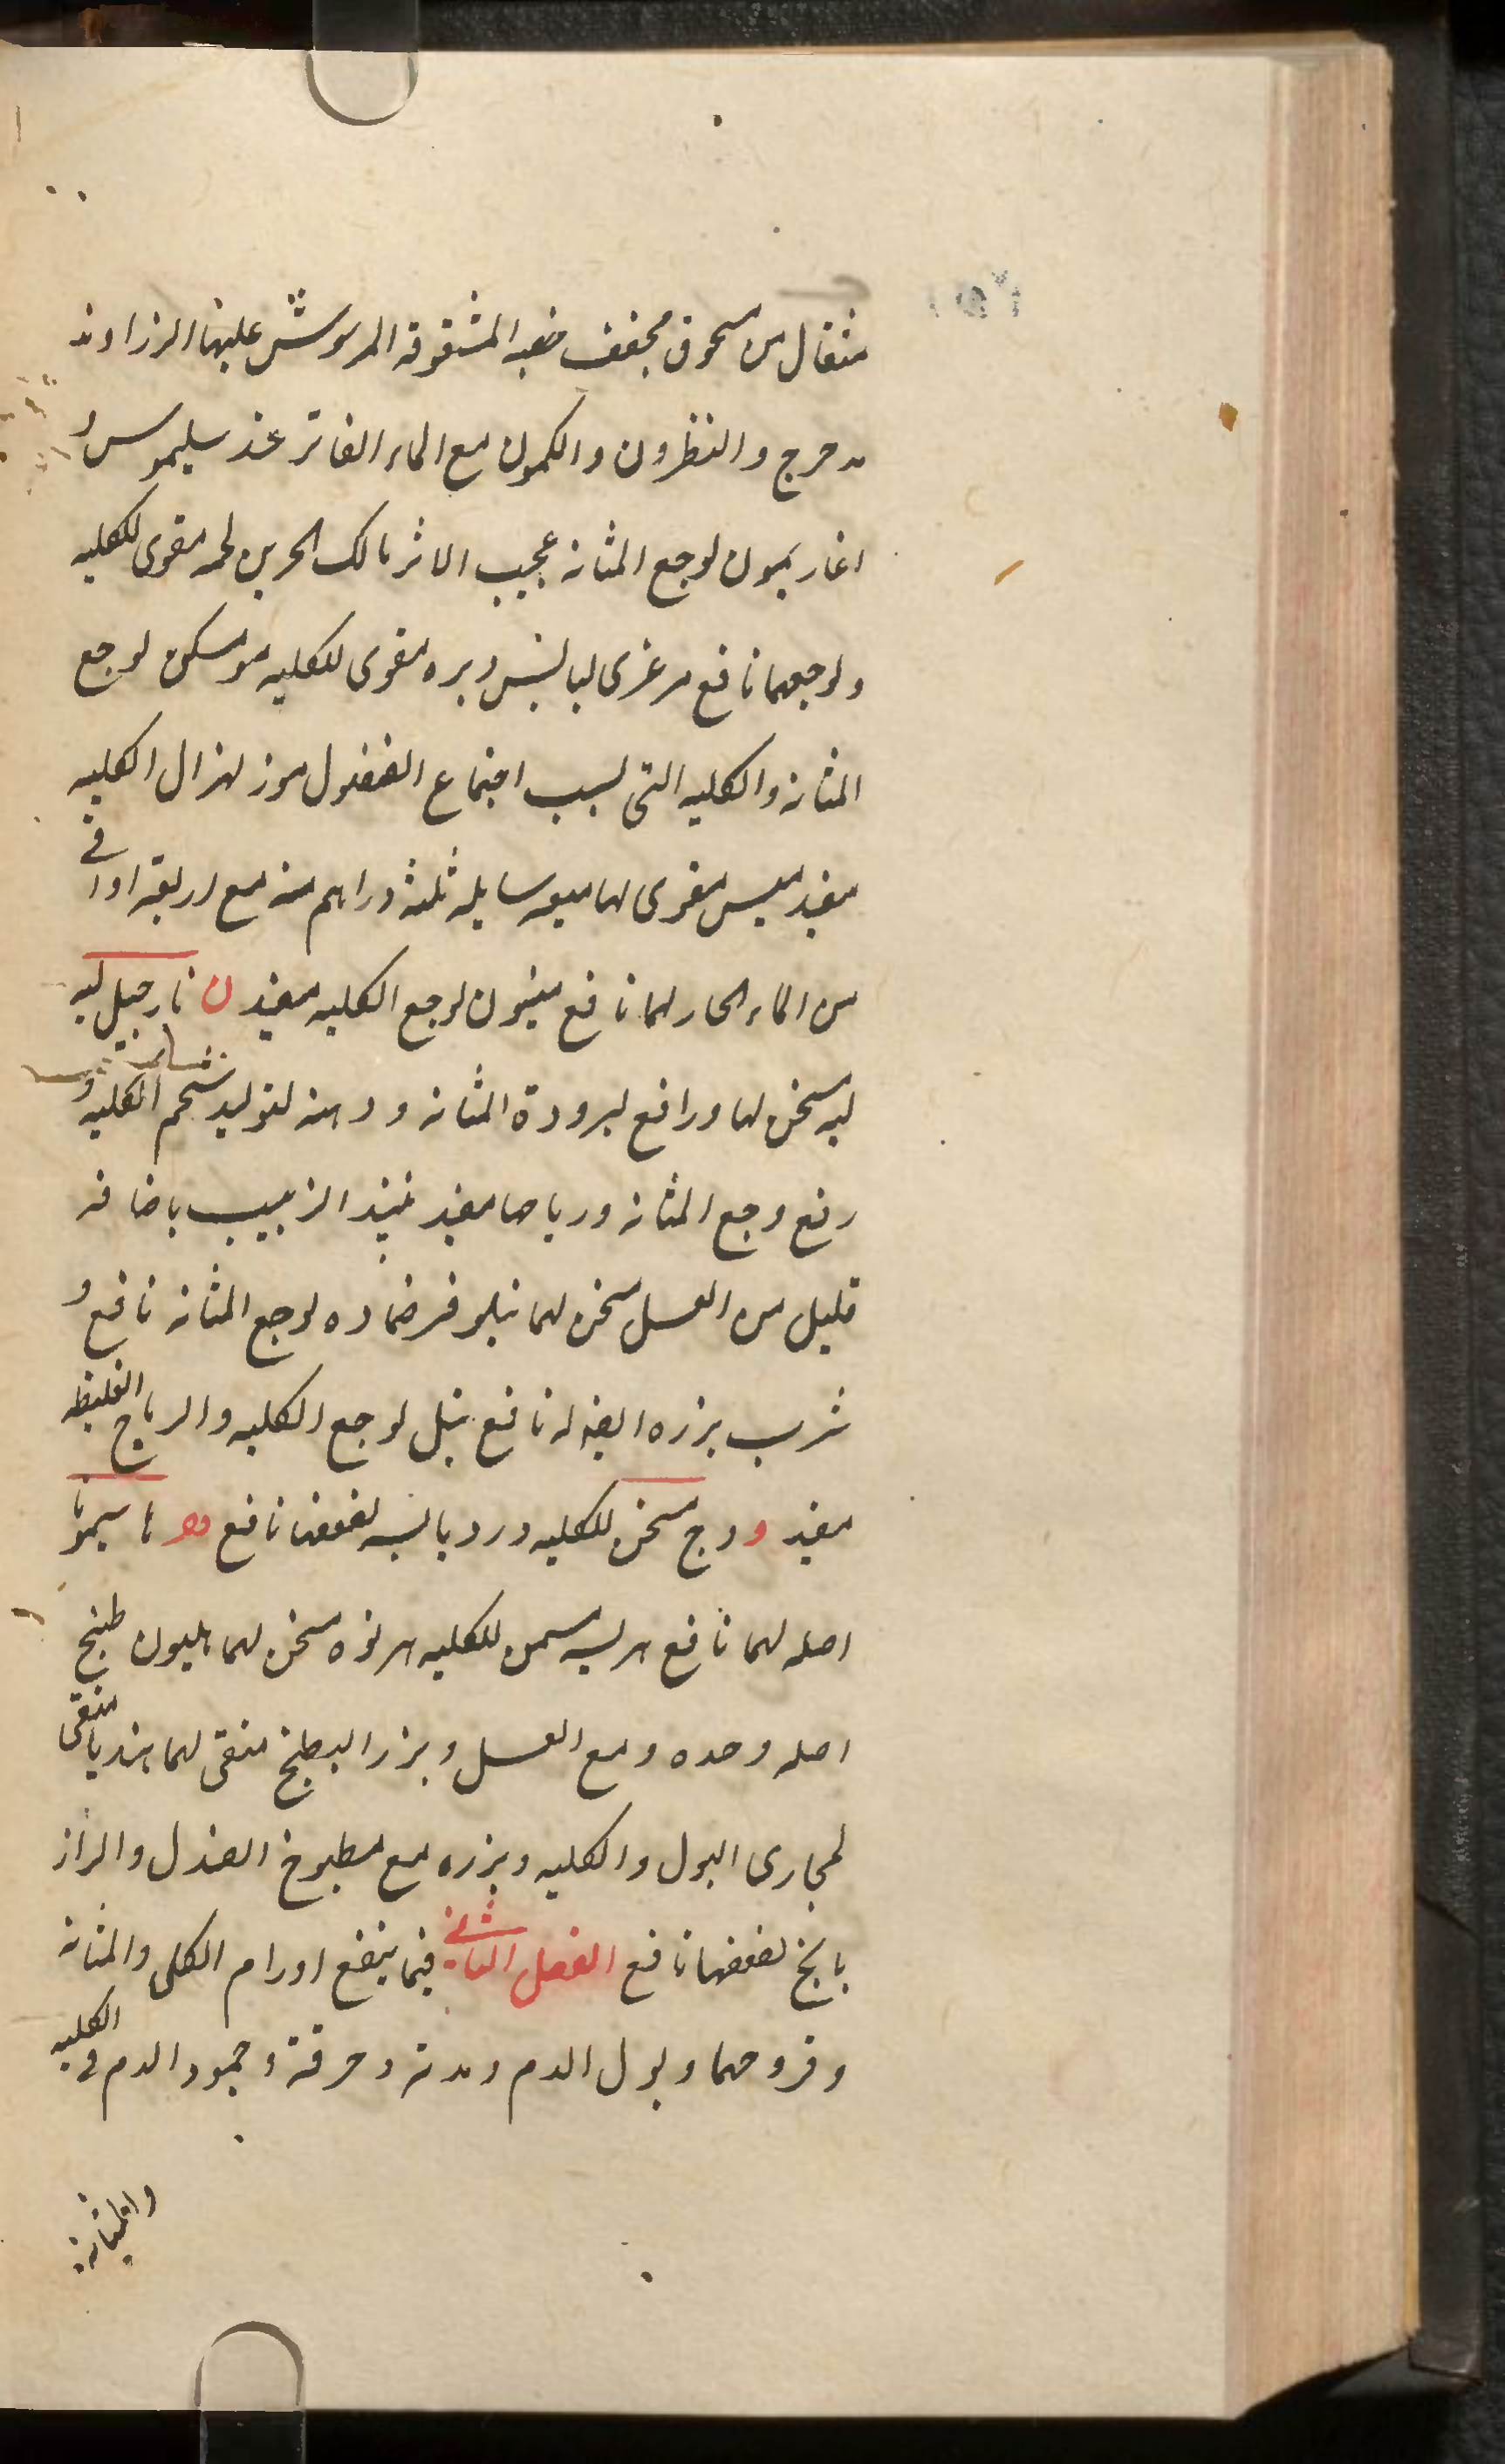 مثقال من سحوق مجفف خصيه المشقوقة المرشوش عليها الزراوند
مدحرج والنطرون والكمون مع الماء الفاتر عند سليموس و
اغاريمون لوجع المثانه عجيب الاثر مالك الحزين لحمه مقوى للكليه
ولوجعهما نافع مرعزى لباس وبره مقوى للكليه مو مسكن لوجع
المثانه والكليه التى لسبب اجتماع الفضول موز لهزال الكليه
مفيد ميس مقوى لها ميعه سايله ثلثه دراهم منه مع اربعة اواقى
من الماء الحار لهما نافع مينون لوجع الكليه مفيد ن نارجيل لبه
لبه مسخن لها ورافع لبرودة المثانه ودهنه لتوليد شحم الكليه و
رفع وجع المثانه ورياحها مفيد نبيذ الزبيب باضافه
قليل من العسل مسخن لهما نيلوفر ضماده لوجع المثانه نافع و
شرب بزره ايضا له نافع نيل لوجع الكليه والرياح الغليظه
مفيد و وج مسخن للكليه ورد يابسه لضعفها نافع ه هاسيمونا
اصله لهما نافع هريسه مسمن للكليه هرنوه مسخن لهما هليون طبخ
اصله وحده ومع العسل وبزر البطيخ منقى لهما هندبا منقى
لمجارى البول والكليه وبزره مع مطبوخ الصندل والراز
يانج لضعفهما نافع الفصل الثانى فيما ينفع اورام الكلى والمثانه
وقروحهما وبول الدم ومدته وحرقة وجمود الدم فى الكليه
والمثانه